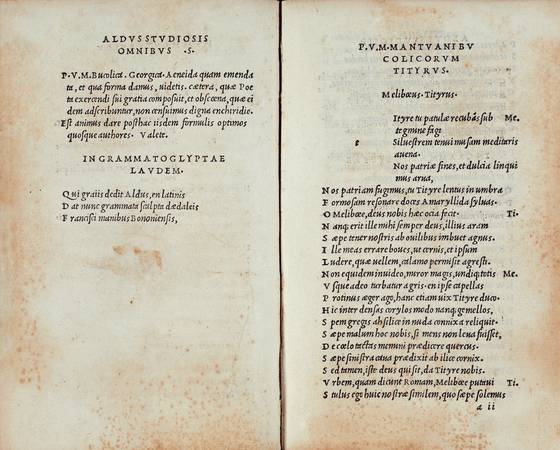 ALDVS STVDIOSIS
OMNIBVS ·S·
P·V·M·Bucolica. Georgica. Aeneida quam emenda
ta, et qua forma damus, uidetis. cætera, quæ Poe
ta exercendi sui gratia composuit, et obscœna, quæ ei
dem adscribuntur, non censuimus digna enchiridio.
Est animus dare posthac iisdem formulis optimos
quosque authores. Valete.
IN GRAMMATOGLYPTAE
LAVDEM.
Qui graiis dedit Aldus, en latinis
Dat nunc grammata scalpta dædaleis
Francisci manibus Bononiensis.
P·V·M·MANTVANI BV
COLICORVM
TITYRVS·
Melibœus·Tityrus·
Ityre tu patulæ recubás sub Me.
te gmine fagi
t
Siluestrem tenui musam meditaris
auena·
Nos patriæ fines, et dulcia linqui
mus arua,
Nos patriam fugimus, tu Tityre lentus in umbra
Formosam resonare doces Amaryllida syluas·
O Melibœe, deus nobis hæc ocia fecit· Ti.
Nanq; erit ille mihi semper deus, illius aram
Sæpe tener nostris ab ouilibus imbuet agnus.
Ille meas errare boues, ut cernis, et ipsum
Ludere, quæ uellem, calamo permisit agresti.
Non equidem inuideo, miror magis, undiq; totis Me.
Vsque adeo turbatur agris· en ipse capellas
Protinus æger ago, hanc etiam uix Tityre duco·
Hic inter densas corylos modo nanq; gemellos,
Spem gregis ah silice in nuda connixa reliquit·
Sæpe malum hoc nobis, si mens non leua fuisset,
De cœlo tactas memini prædicere quercus·
Sæpe sinistra caua prædixit ab ilice cornix.
Sed tamen, iste deus qui sit, da Tityre nobis.
Vrbem, quam dicunt Romam, Melibœe putaui Ti.
Stulus ego huic nostræ similem, quo sæpe solemus
a ii